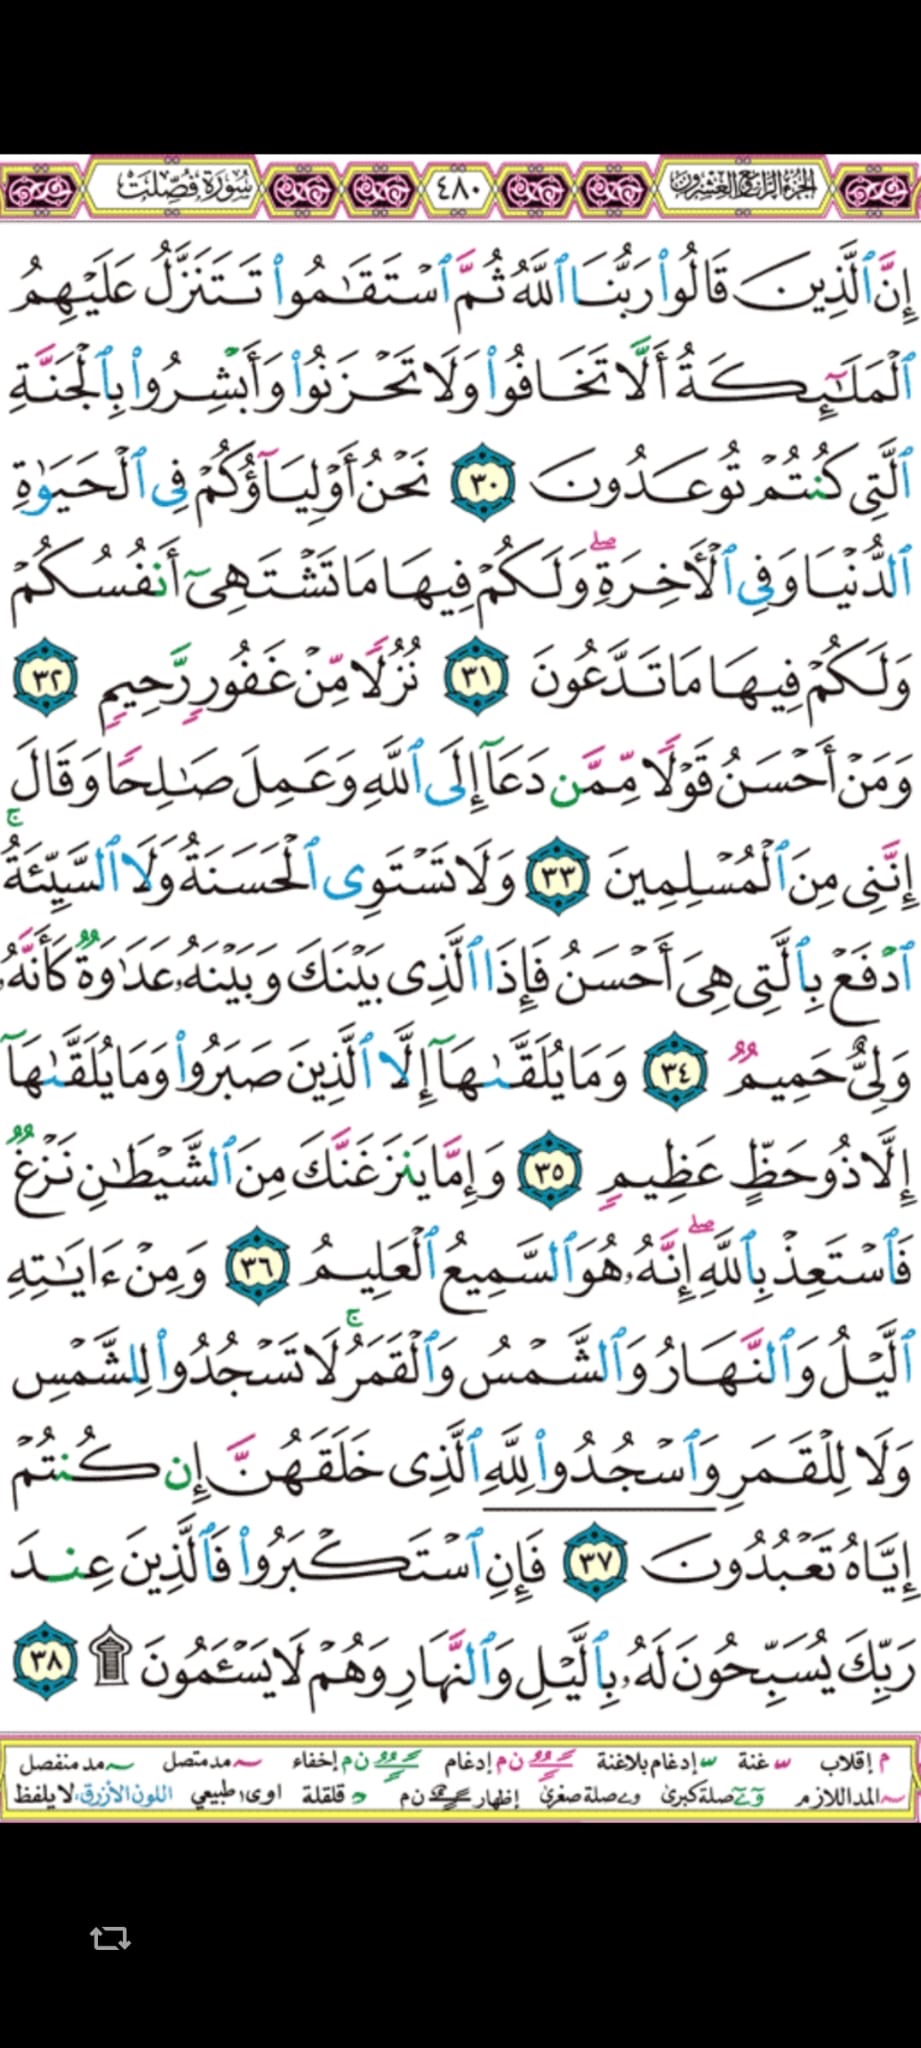 الجزء الرابع العشرون ٤٨٠ سورة فصلت
إِنَّ ٱلَّذِينَ قَالُوا۟ رَبُّنَا ٱللَّهُ ثُمَّ ٱسْتَقَـٰمُوا۟ تَتَنَزَّلُ عَلَيْهِمُ
ٱلْمَلَـٰٓئِكَةُ أَلَّا تَخَافُوا۟ وَلَا تَحْزَنُوا۟ وَأَبْشِرُوا۟ بِٱلْجَنَّةِ
ٱلَّتِى كُنتُمْ تُوعَدُونَ ٣٠ نَحْنُ أَوْلِيَآؤُكُمْ فِى ٱلْحَيَوٰةِ
ٱلدُّنْيَا وَفِى ٱلْـَٔاخِرَةِ ۖ وَلَكُمْ فِيهَا مَا تَشْتَهِىٓ أَنفُسُكُمْ
وَلَكُمْ فِيهَا مَا تَدَّعُونَ ٣١ نُزُلًا مِّنْ غَفُورٍ رَّحِيمٍ ٣٢
وَمَنْ أَحْسَنُ قَوْلًا مِّمَّن دَعَآ إِلَى ٱللَّهِ وَعَمِلَ صَـٰلِحًا وَقَالَ
إِنَّنِى مِنَ ٱلْمُسْلِمِينَ ٣٣ وَلَا تَسْتَوِى ٱلْحَسَنَةُ وَلَا ٱلسَّيِّئَةُ ۚ
ٱدْفَعْ بِٱلَّتِى هِىَ أَحْسَنُ فَإِذَا ٱلَّذِى بَيْنَكَ وَبَيْنَهُۥ عَدَٰوَةٌ كَأَنَّهُۥ
وَلِىٌّ حَمِيمٌ ٣٤ وَمَا يُلَقَّىٰهَآ إِلَّا ٱلَّذِينَ صَبَرُوا۟ وَمَا يُلَقَّىٰهَآ
إِلَّا ذُو حَظٍّ عَظِيمٍ ٣٥ وَإِمَّا يَنزَغَنَّكَ مِنَ ٱلشَّيْطَـٰنِ نَزْغٌ
فَٱسْتَعِذْ بِٱللَّهِ ۖ إِنَّهُۥ هُوَ ٱلسَّمِيعُ ٱلْعَلِيمُ ٣٦ وَمِنْ ءَايَـٰتِهِ
ٱلَّيْلُ وَٱلنَّهَارُ وَٱلشَّمْسُ وَٱلْقَمَرُ ۚ لَا تَسْجُدُوا۟ لِلشَّمْسِ
وَلَا لِلْقَمَرِ وَٱسْجُدُوا۟ لِلَّهِ ٱلَّذِى خَلَقَهُنَّ إِن كُنتُمْ
إِيَّاهُ تَعْبُدُونَ ٣٧ فَإِنِ ٱسْتَكْبَرُوا۟ فَٱلَّذِينَ عِندَ
رَبِّكَ يُسَبِّحُونَ لَهُۥ بِٱلَّيْلِ وَٱلنَّهَارِ وَهُمْ لَا يَسْـَٔمُونَ ۩ ٣٨
م إقلاب غنة إدغام بلاغنة ن م إدغام ن م إخفاء مد متصل مد منفصل
المد اللازم صلة كبرى صلة صغرى إظهار ن م قلقلة اوى طبيعي اللون الأزرق: لا يلفظ